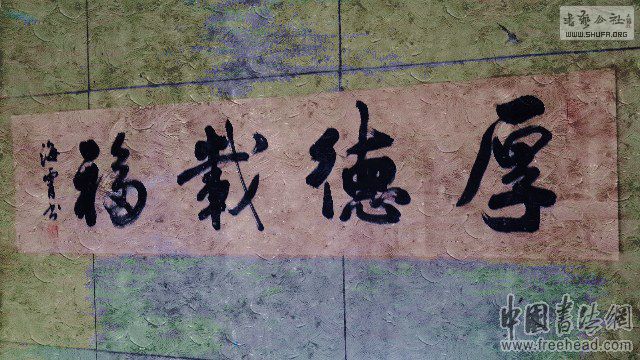 厚德載福
海霄书
书艺公社
WWW.SHUFA.ORG
中国书法網
www.freehead.com